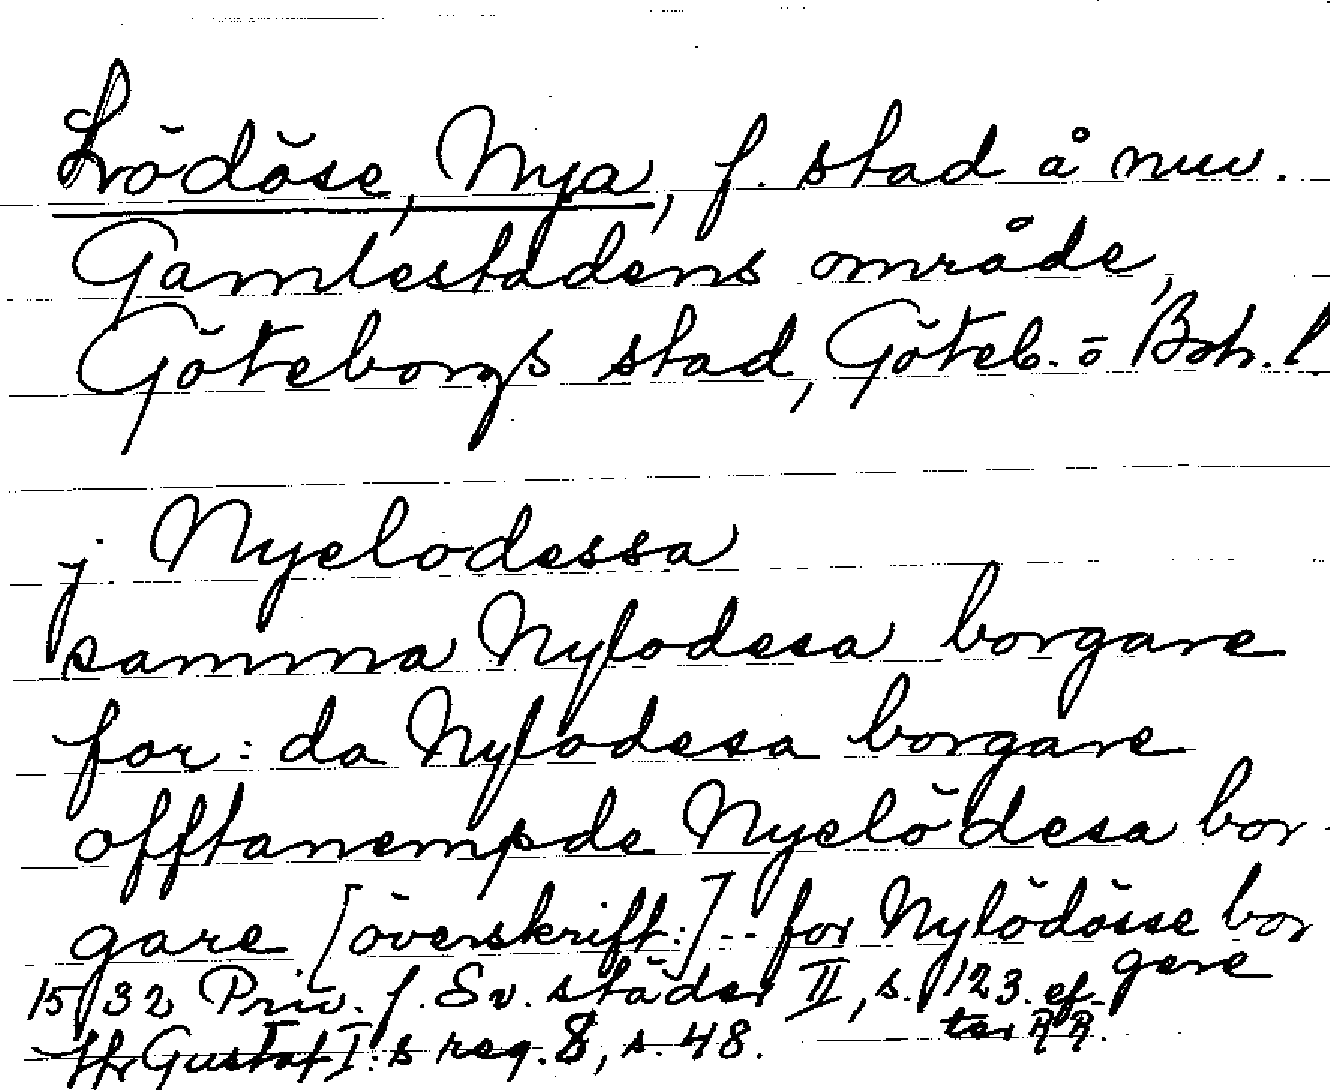 Lödöse, Nya, f. stad å nuv.
Gamlestadens område,
Göteborgs stad, Göteb. o Boh. l.
j Nyelodessa
samma Nylodesa borgare
for: da Nylodesa borgare
offtanempde Nyelödesa bor-
gare [överskrift:] -- for Nylödösse bor
gere
1532 Priv. f. Sv. städer II, s. 123. ef-
ter RR.
Jfr Gustaf I:s reg. 8, s. 48.